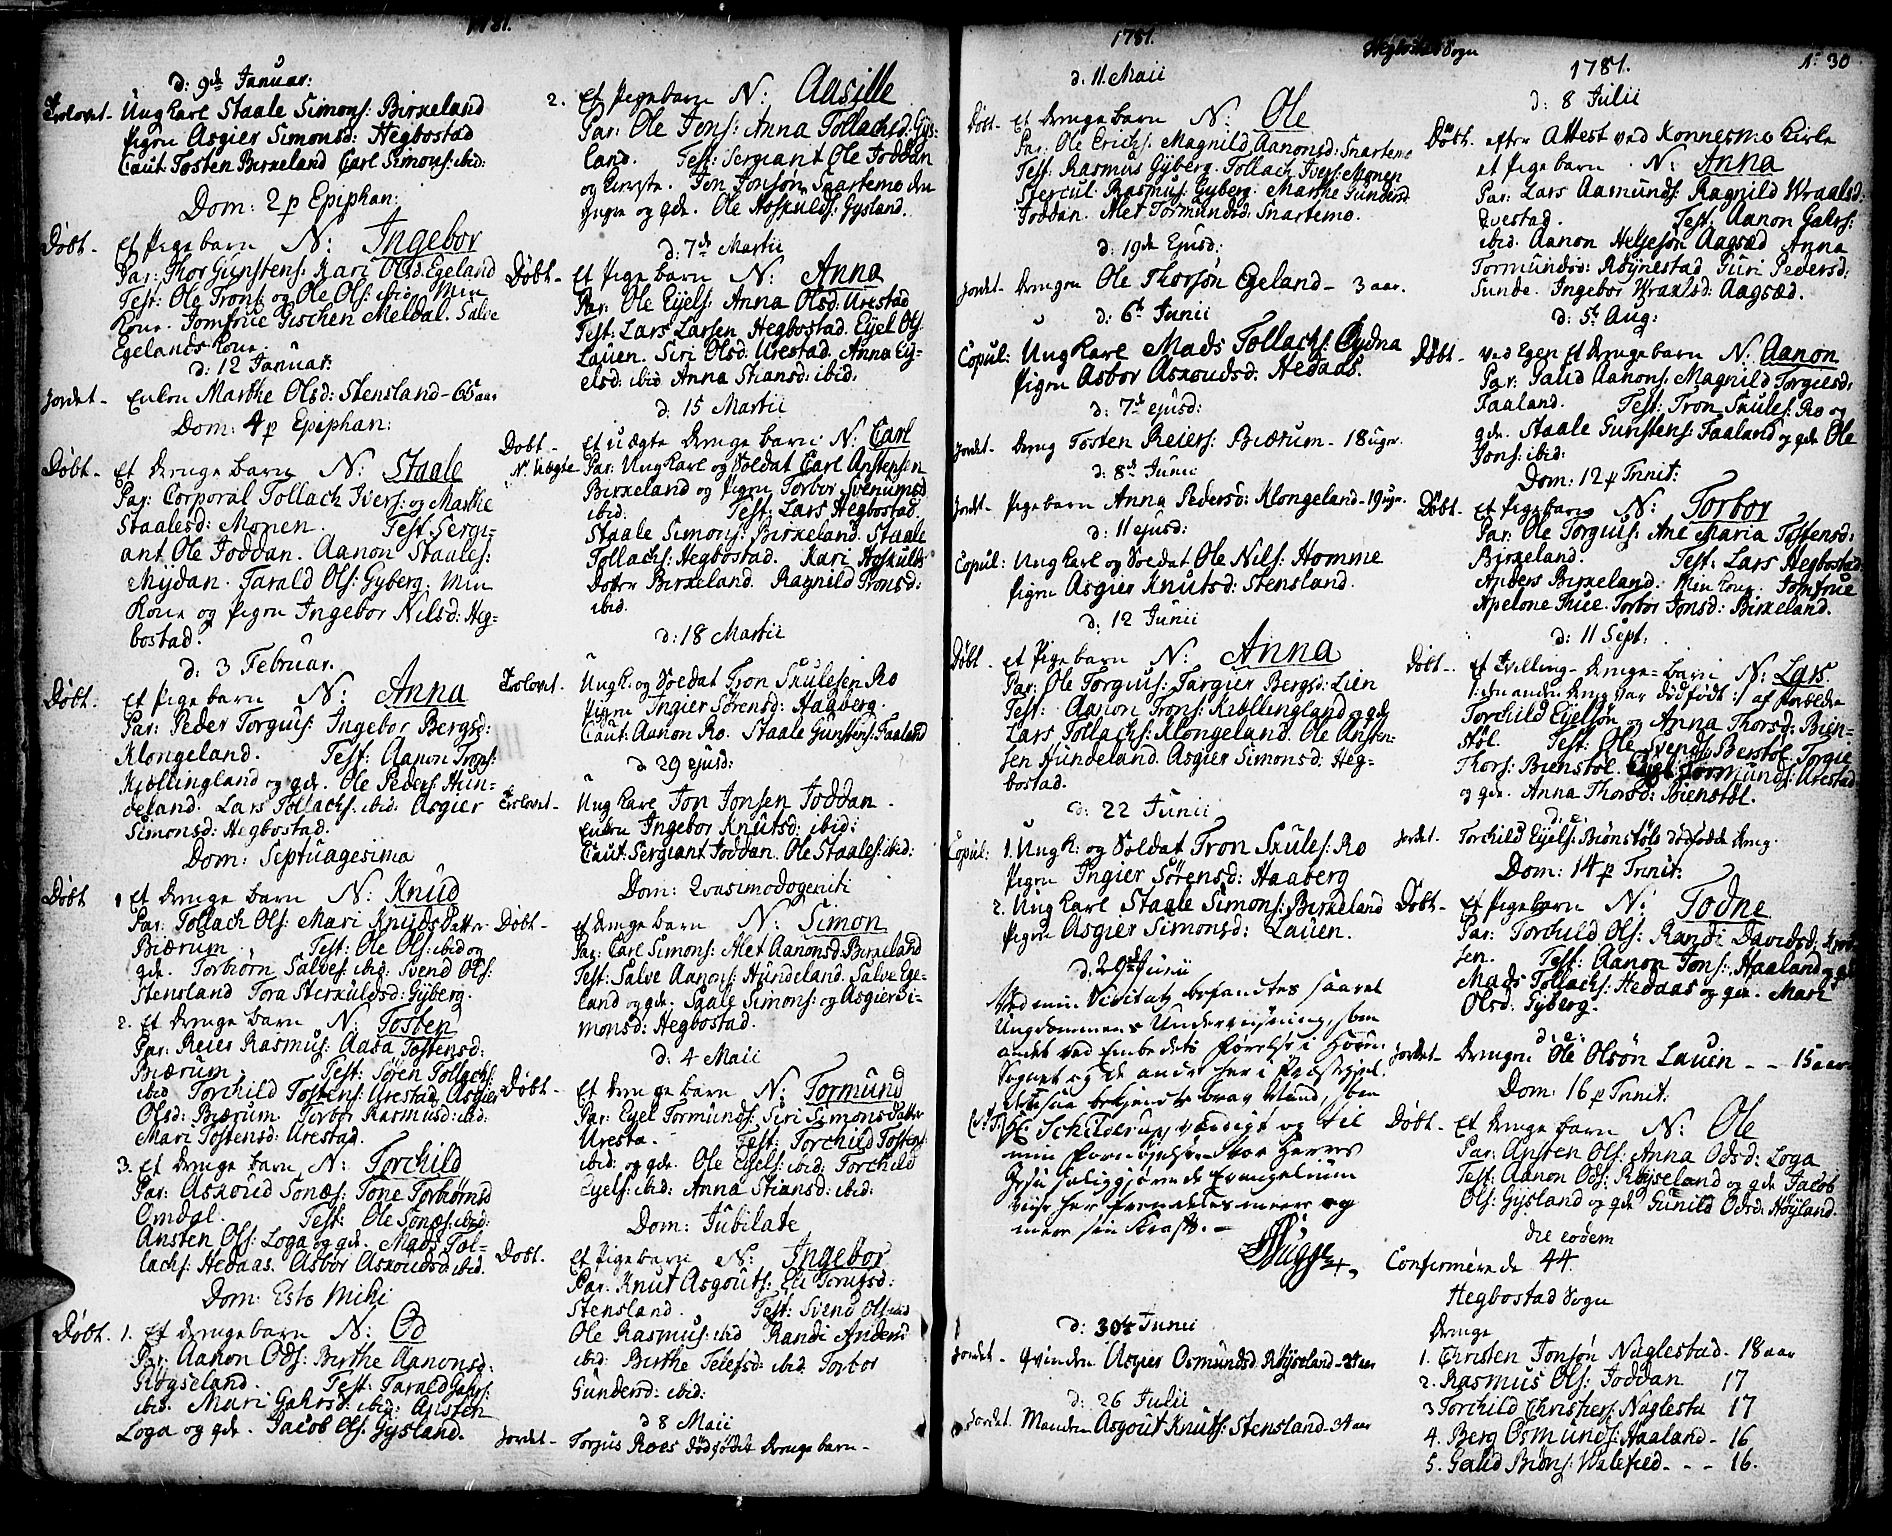 1781.
d: 9de Januar:
Trolovet - Ung Karl Staale Simons: Birkeland
Pigen Asgier Simonsd: Hegbostad
Caut: Tosten Birkeland Carl Simons: ibid:
Dom: 2 p Epiphan:
Døbt - Et Pige barn N: Ingebor
Par: Thor Gunstens: Kari Olsd: Egeland
Test: Ole Trons: og Ole Ols: ibid Min
Kone. Jomfrue Gischen Meldal. Salve
Egelands Kone.
d: 12 Januar:
Jordet - Enken Marthe Olsd: Stensland - 65 aar
Dom: 4 p Epiphan:
Døbt - Et Drenge barn N: Staale
Par: Corporal Tollach Ivers: og Marthe
Staalesd: Monen. Test: Sergi-
ant Ole Joddan. Aanon Staales:
Mydan. Tarald Ols: Gyberg. Min
Kone og Pigen Ingebor Nilsd: Heg-
bostad.
d: 3 Februar.
Døbt: et Pige barn N: Anna
Par: Peder Torguis: Ingebor Bergsd:
Klongeland. Test: Aanon Trons:
Kiællingland og gde. Ole Peders: Hun-
deland. Lars Tollachs: ibid: Asgier
Simonsd: Hegbostad.
Dom: Septuagesima
Døbt 1 Et Drenge barn N: Knud
Par: Tollach Ols: Mari Knuds Datter
Biærum. Test: Ole Ols: ibid og
gde. Torbiørn Salves: ibid: Svend Ols:
Stensland Tora Sterkulsd: Gyberg.
2. Et Drenge barn N: Tosten
Par: Reier Rasmus: Aasa Tostensd:
Biærum. Test: Søren Tollachs:
ibid Torchild Tostens: Urestad, Asgier
Olsd: Biærum. Torbor Rasmusd: ibid:
Mari Tostensd: Urestad.
3. Et Drenge barn N: Torchild
Par: Askoud Tones: Tone Torbiørnsd
Omdal. Test: Ole Tones: ibid:
Ansten Ols: Loga og gde. Mads Tol-
lachs: Hedaas. Asbor Askoudsd: ibid.
Dom: Esto Mihi
Døbt. 1. Et Drenge barn N: Od
Par: Aanon Ods: Birthe Aanonsd:
Røyseland. Test: Tarald Gahrs:
ibid. Mari Gahrsd: ibid: Ansten
Loga og gde. Jacob Ols: Gysland.
2. Et Pige barn N: Aasille
Par: Ole Jons: Anna Tollachsd: Gys-
land. Test: Sergeant Ole Joddan
og Kieriste. Jon Jonsøn Snartemo den
Yngre og gde. Ole Hoskulds: Gysland.
d: 7de Martii
Døbt - Et Pige barn N: Anna
Par: Ole Eyels: Anna Olsd: Urestad
Test: Lars Larsen Hegbostad. Eyel Ols:
Lauen. Siri Olsd: Urestad. Anna Ey-
elsd: ibid Anna Stiansd: ibid:
d: 15 Martii
Døbt - Et uægte Drenge barn N: Carl
No Uægte Par: Ung Karl og Soldat Carl Anstensen
Birkeland og Pigen Torbor Svenumsd
ibid. Test: Lars Hegbostad.
Staale Simons: Birkeland. Staale
Tollachs: Hegbostad. Kari Hoskulds
Datter Birkeland Ragnild Tronsd:
ibid.
d: 18 Martii
Trolovet. Ung K: og Soldat Tron Skulesen Ro
Pigen Ingier Sørensd: Haaberg.
Caut: Aanon Ro. Staale Gunstens: Faaland
d 29 ejusd:
Trolovet - Ung Karl Jon Jonsen Joddan.
Enken Ingebor Knutsd: ibid:
Caut: Sergiant Joddan. Ole Staales: ibid:
Dom: Quasimodogeniti
Døbt - et Drenge barn N: Simon
Par: Carl Simons: Alet Aanonsd: Birkeland
Test: Salve Aanons: Hundeland. Salve Ege-
land og gde. Staale Simons: og Asgier Si-
monsd: Hegbostad.
d: 4 Maii
Døbt - Et Drenge barn N: Tormund
Par: Eyel Tormunds: Siri Simons Datter
Uresta. Test: Torchild Tostens:
ibid: og gde. Ole Eyels: ibid: Torchild
Eyels: ibid: Anna Stiansd: ibid:
Dom: Jubilate
Døbt. Et Pige barn N: Ingebor
Par. Knut Asgouts: Eli Torufsd:
Stensland. Test: Svend Ols: ibid
Ole Rasmus: ibid Randi Andersd
ibid: Birthe Telefsd: ibid Torbor
Gundersd: ibid:
d 8 Maii
Jordet - Torjus Roes dødfødt Drenge barn -
1781.
Hegbostad Sogn
d: 11 Maii
Døbt - Et Drenge barn N: Ole
Par: Ole Erichs: Magnild Aanonsd: Snartemo
Test: Rasmus Gyberg. Tollach Ivers: Monen
Stercul: Rasmus: Gyberg. Marthe Gundersd
Joddan. Alet Tormundsd: Snartemo.
d: 19de Ejusd:
Jordet - Drengen Ole Thorsøn Egeland - 3 aar.
d: 6te Junii
Copul: Ung Karl Mads Tollachs: Gydna
Pigen Asbor Askoudsd: Hedaas.
d: 7de ejusd:
Jordet - Dreng Tosten Reiers: Biærum - 18 uger.
d: 8de Junii
Jordet - Pige barn Anna Pedersd: Klongeland - 19 uger.
d: 11 ejusd:
Copul: Ung Karl og Soldat Ole Nils: Homme
Pigen Asgier Knutsd: Stensland.
d: 12 Junii
Døbt - et Pige barn N: Anna
Par: Ole Torguis: Targier Bergsd: Lien
Test: Aanon Trons: Kiællingland og gde
Lars Tollachs: Klongeland. Ole Ansten-
sen Hundeland. Asgier Simonsd: Heg-
bostad.
d: 22 Junii
Copul: 1. Ung K: og Soldat Tron Skules: Ro
Pigen Ingier Sørensd: Haaberg
2. Ung Karl Staale Simons: Birkeland
Pigen Asgier Simonsd: Lauen.
d: 29de Junii
Ved min Visitatz befandtes saavel
Ungdommens Underviisning, som
andet ved Embedets Førelse i Hoved
Sognet og de andre her i Præstegiel.
Schilderup værdigt og til
min Fornøyelse. Stoer Herres
Jesu saliggiørende Evangelium
viise her fremdeles meere og
meere sin Kraft. -
d: 30te Junii
Jordet - Qvinden Asgier Osmundsd: Røyseland -
d: 26 Julii
Jordet. Manden Asgout Knuts: Stensland - 34 aar
1781. No 30
d: 8 Julii
Døbt. efter Attest ved Konnesmo Kirke
et Pige barn. N: Anna
Par: Lars Aasmunds: Ragnild Wraalsd:
Qvestad. Test: Aanon Gahrs:
ibid. Aanon Helgesøn Aagsæd Anna
Tormundsd: Røynestad Guri Pedersd:
Sunde. Ingebor Wraalsd: Aagsæd.
d: 5te Aug:
Døbt - ved Egen Et Drenge barn N: Aanon
Par: Gaud Aanons: Magnild Torgiesd:
Faaland. Test: Tron Skules: Ro og
gde. Staale Gunstens: Faaland og gde Ole
Jons: ibid:
Dom: 12 p Trinit:
Døbt - et Pige barn N: Torbor
Par: Ole Torguis: Ane Maria Tostensd:
Birkeland. Test: Lars Hegbostad
Anders Birkeland: Min Kone. Jomfrue
Apelone True. Torbor Jonsd: Birkeland.
d: 11 Sept:
Døbt - Et Tvilling-Drenge-barn N: Lars
/: den anden Dreng var dødfødt :/ af forældre
Torchild Eyelsøn og Anna Thorsd: Bien-
støl. Test: Ole Svends: Berstøl Torgie
Thors: Bienstøl. Eyel Tormunds: Urestad
og gde. Anna Thorsd: Bienstøl.
d: e:
Jordet. Torchild Eyels: Bionstøls dødfødde Dreng.
Dom: 14 p Trinit:
Døbt - et Pige barn N: Todne
Par: Torchild Ols: Randi Davidsd:
sen. Test: Aanon Jons: Haaland og gde
Mads Tollachs: Hedaas og gde. Mari
Olsd: Gyberg.
d: e:
Jordet - Drengen Ole Olsøn Lauen - - 15 aar
Dom: 16 p Trinit:
Døbt. Et Drenge barn N: Ole
Par: Ansten Ols: Anna Odsd: Loga
Test: Aanon Ods: Røyseland og gde Jacob
Ols: Gysland og gde Gunild Odsd: Høyland.
die eodem
Confirmerede 44.
Hegbostad Sogn
Drenge
1. Christen Jonsøn Naglestad - 18 aar
2. Rasmus Ols: Joddan 17
3 Torchild Christens: Naglesta 17
4. Berg Osmunds: Haaland - 16
5. Gahd Biøns: Walefield - - - 16.